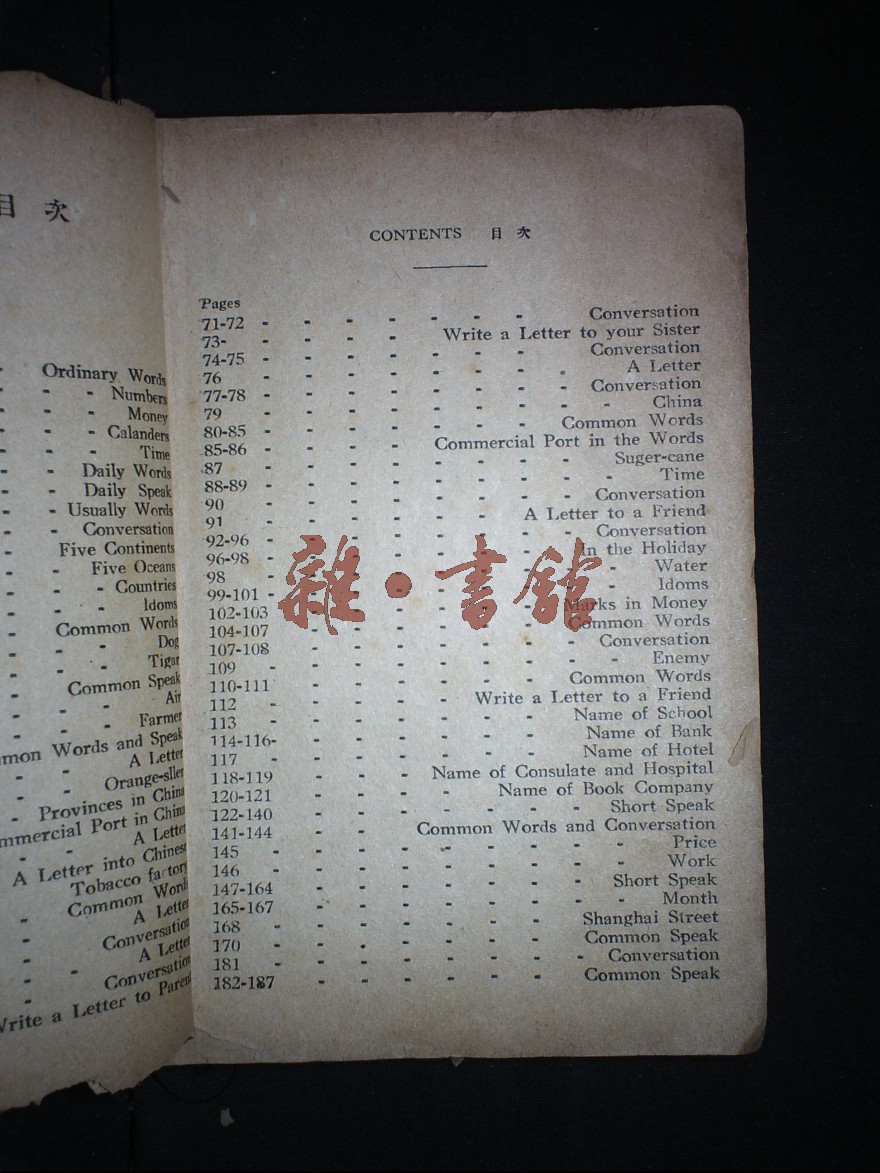 目 次
Ordinary Words
- - Numbers
- - Money
- - - Calanders
- - - Time
- - Daily Words
- - Daily Speak
- - Usually Words
- - Conversation
- - Five Continents
- - Five Oceans
- - - Countries
- - - Idoms
- - Common Words
- - - Dog
- - - Tigar
- - Common Speak
- - - Air
- - - Farmer
Words and Speak
- - A Letter
- - Orange-sller
- Provinces in China
Port in China
- - A Letter
A Letter into Chinese
Tobacco factory
- Common Words
- - A Letter
- Conversation
- - A Letter
- Conversation
Write a Letter to Parent
CONTENTS 目 次
Pages
71-72 - - - - - - - Conversation
73- - - - - Write a Letter to your Sister
74-75 - - - - - - - Conversation
76 - - - - - - - - A Letter
77-78 - - - - - - - Conversation
79 - - - - - - - - - China
80-85 - - - - - - - Common Words
85-86 - - - - Commercial Port in the Words
87 - - - - - - - - Suger-cane
88-89 - - - - - - - - - Time
90 - - - - - - - - Conversation
91 - - - - - - A Letter to a Friend
92-96 - - - - - - - - Conversation
96-98 - - - - - - - In the Holiday
98 - - - - - - - - - Water
99-101 - - - - - - - - - Idoms
102-103 - - - - - - Marks in Money
104-107 - - - - - - Common Words
107-108 - - - - - - - Conversation
109 - - - - - - - - - Enemy
110-111 - - - - - - Common Words
112 - - - - - Write a Letter to a Friend
113 - - - - - - - Name of School
114-116- - - - - - - Name of Bank
117 - - - - - - - Name of Hotel
118-119 - - - Name of Consulate and Hospital
120-121 - - - - Name of Book Company
122-140 - - - - - - - Short Speak
141-144 - - Common Words and Conversation
145 - - - - - - - - - Price
146 - - - - - - - - - Work
147-164 - - - - - - - Short Speak
165-167 - - - - - - - - Month
168 - - - - - - - Shanghai Street
170 - - - - - - - Common Speak
181 - - - - - - - - Conversation
182-187 - - - - - - Common Speak
雜·書館